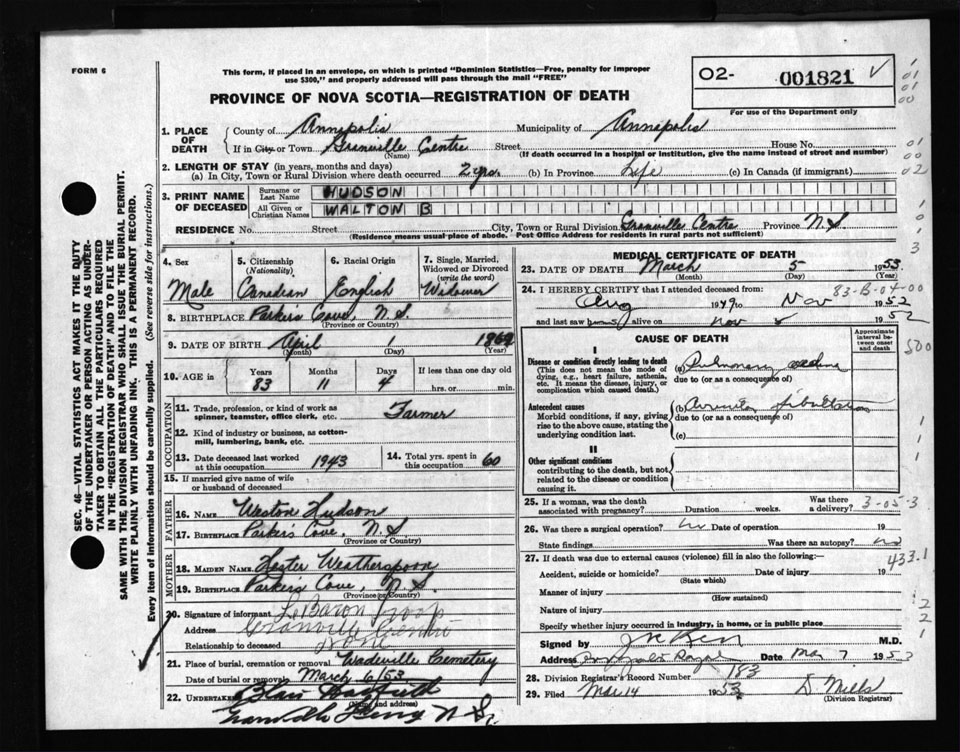 FORM 6
This form, if placed in an envelope, on which is printed "Dominion Statistics—Free, penalty for improper
use $300," and properly addressed will pass through the mail "FREE"
O2- 001821
For use of the Department only
PROVINCE OF NOVA SCOTIA—REGISTRATION OF DEATH
1. PLACE OF DEATH { County of Annapolis Municipality of Annapolis
If in City or Town Granville Centre (Name) Street House No.
(If death occurred in a hospital or institution, give the name instead of street and number)
2. LENGTH OF STAY (in years, months and days)
(a) In City, Town or Rural Division where death occurred 2 yrs. (b) In Province Life (c) In Canada (if immigrant)
3. PRINT NAME OF DECEASED { Surname or Last Name HUDSON
All Given or Christian Names WALTON B
RESIDENCE No. Street City, Town or Rural Division Granville Centre Province N.S.
(Residence means usual place of abode. Post Office Address for residents in rural parts not sufficient)
4. Sex Male
5. Citizenship (Nationality) Canadian
6. Racial Origin English
7. Single, Married, Widowed or Divorced (write the word) Widower
8. BIRTHPLACE Parkers Cove, N.S.
(Province or Country)
9. DATE OF BIRTH April 1 1869
(Month) (Day) (Year)
10. AGE in { Years 83 Months 11 Days 4 If less than one day old
hrs. or min.
OCCUPATION
11. Trade, profession, or kind of work as spinner, teamster, office clerk, etc. Farmer
12. Kind of industry or business, as cotton-mill, lumbering, bank, etc.
13. Date deceased last worked at this occupation 1943
14. Total yrs. spent in this occupation 60
15. If married give name of wife or husband of deceased
FATHER
16. NAME Weston Hudson
17. BIRTHPLACE Parkers Cove, N.S.
(Province or Country)
MOTHER
18. MAIDEN NAME Hester Weatherspoon
19. BIRTHPLACE Parkers Cove, N.S.
(Province or Country)
20. Signature of informant L. Baron Troop
Address Granville Centre
Relationship to deceased
21. Place of burial, cremation or removal Wadeville Cemetery
Date of burial or removal March 6/53
22. UNDERTAKER Blair
(Name and address)
Granville Ferry N.S.
MEDICAL CERTIFICATE OF DEATH
23. DATE OF DEATH March 5 1953
(Month) (Day) (Year)
83-B-04-00
24. I HEREBY CERTIFY that I attended deceased from:
Aug 1949 to Nov 1952
and last saw h alive on Nov 5 1952
CAUSE OF DEATH
Approximate interval between onset and death
I
Disease or condition directly leading to death
(This does not mean the mode of dying, e.g., heart failure, asthenia, etc. It means the disease, injury, or complication which caused death.)
(a) Pulmonary oedema
due to (or as a consequence of)
Antecedent causes
Morbid conditions, if any, giving rise to the above cause, stating the underlying condition last.
(b) Auricular fibrillation
due to (or as a consequence of)
(c)
II
Other significant conditions
contributing to the death, but not related to the disease or condition causing it.
25. If a woman, was the death associated with pregnancy? Duration weeks. Was there a delivery? 3-05-3
26. Was there a surgical operation? no Date of operation 19
State findings Was there an autopsy? no
27. If death was due to external causes (violence) fill in also the following:— 433.1
Accident, suicide or homicide? Date of injury 19
(State which)
Manner of injury
(How sustained)
Nature of injury
Specify whether injury occurred in industry, in home, or in public place
Signed by M.D.
Address Annapolis Royal Date Mar 7 1953
28. Division Registrar's Record Number 183
29. Filed Mar 14 1953 D Mills
(Division Registrar)
SEC. 46—VITAL STATISTICS ACT MAKES IT THE DUTY
OF THE UNDERTAKER OR PERSON ACTING AS UNDER-
TAKER TO OBTAIN ALL THE PARTICULARS REQUIRED
IN THE "REGISTRATION OF DEATH" AND TO FILE THE
SAME WITH THE DIVISION REGISTRAR WHO SHALL ISSUE THE BURIAL PERMIT.
WRITE PLAINLY WITH UNFADING INK. THIS IS A PERMANENT RECORD.
Every item of information should be carefully supplied. (See reverse side for instructions.)